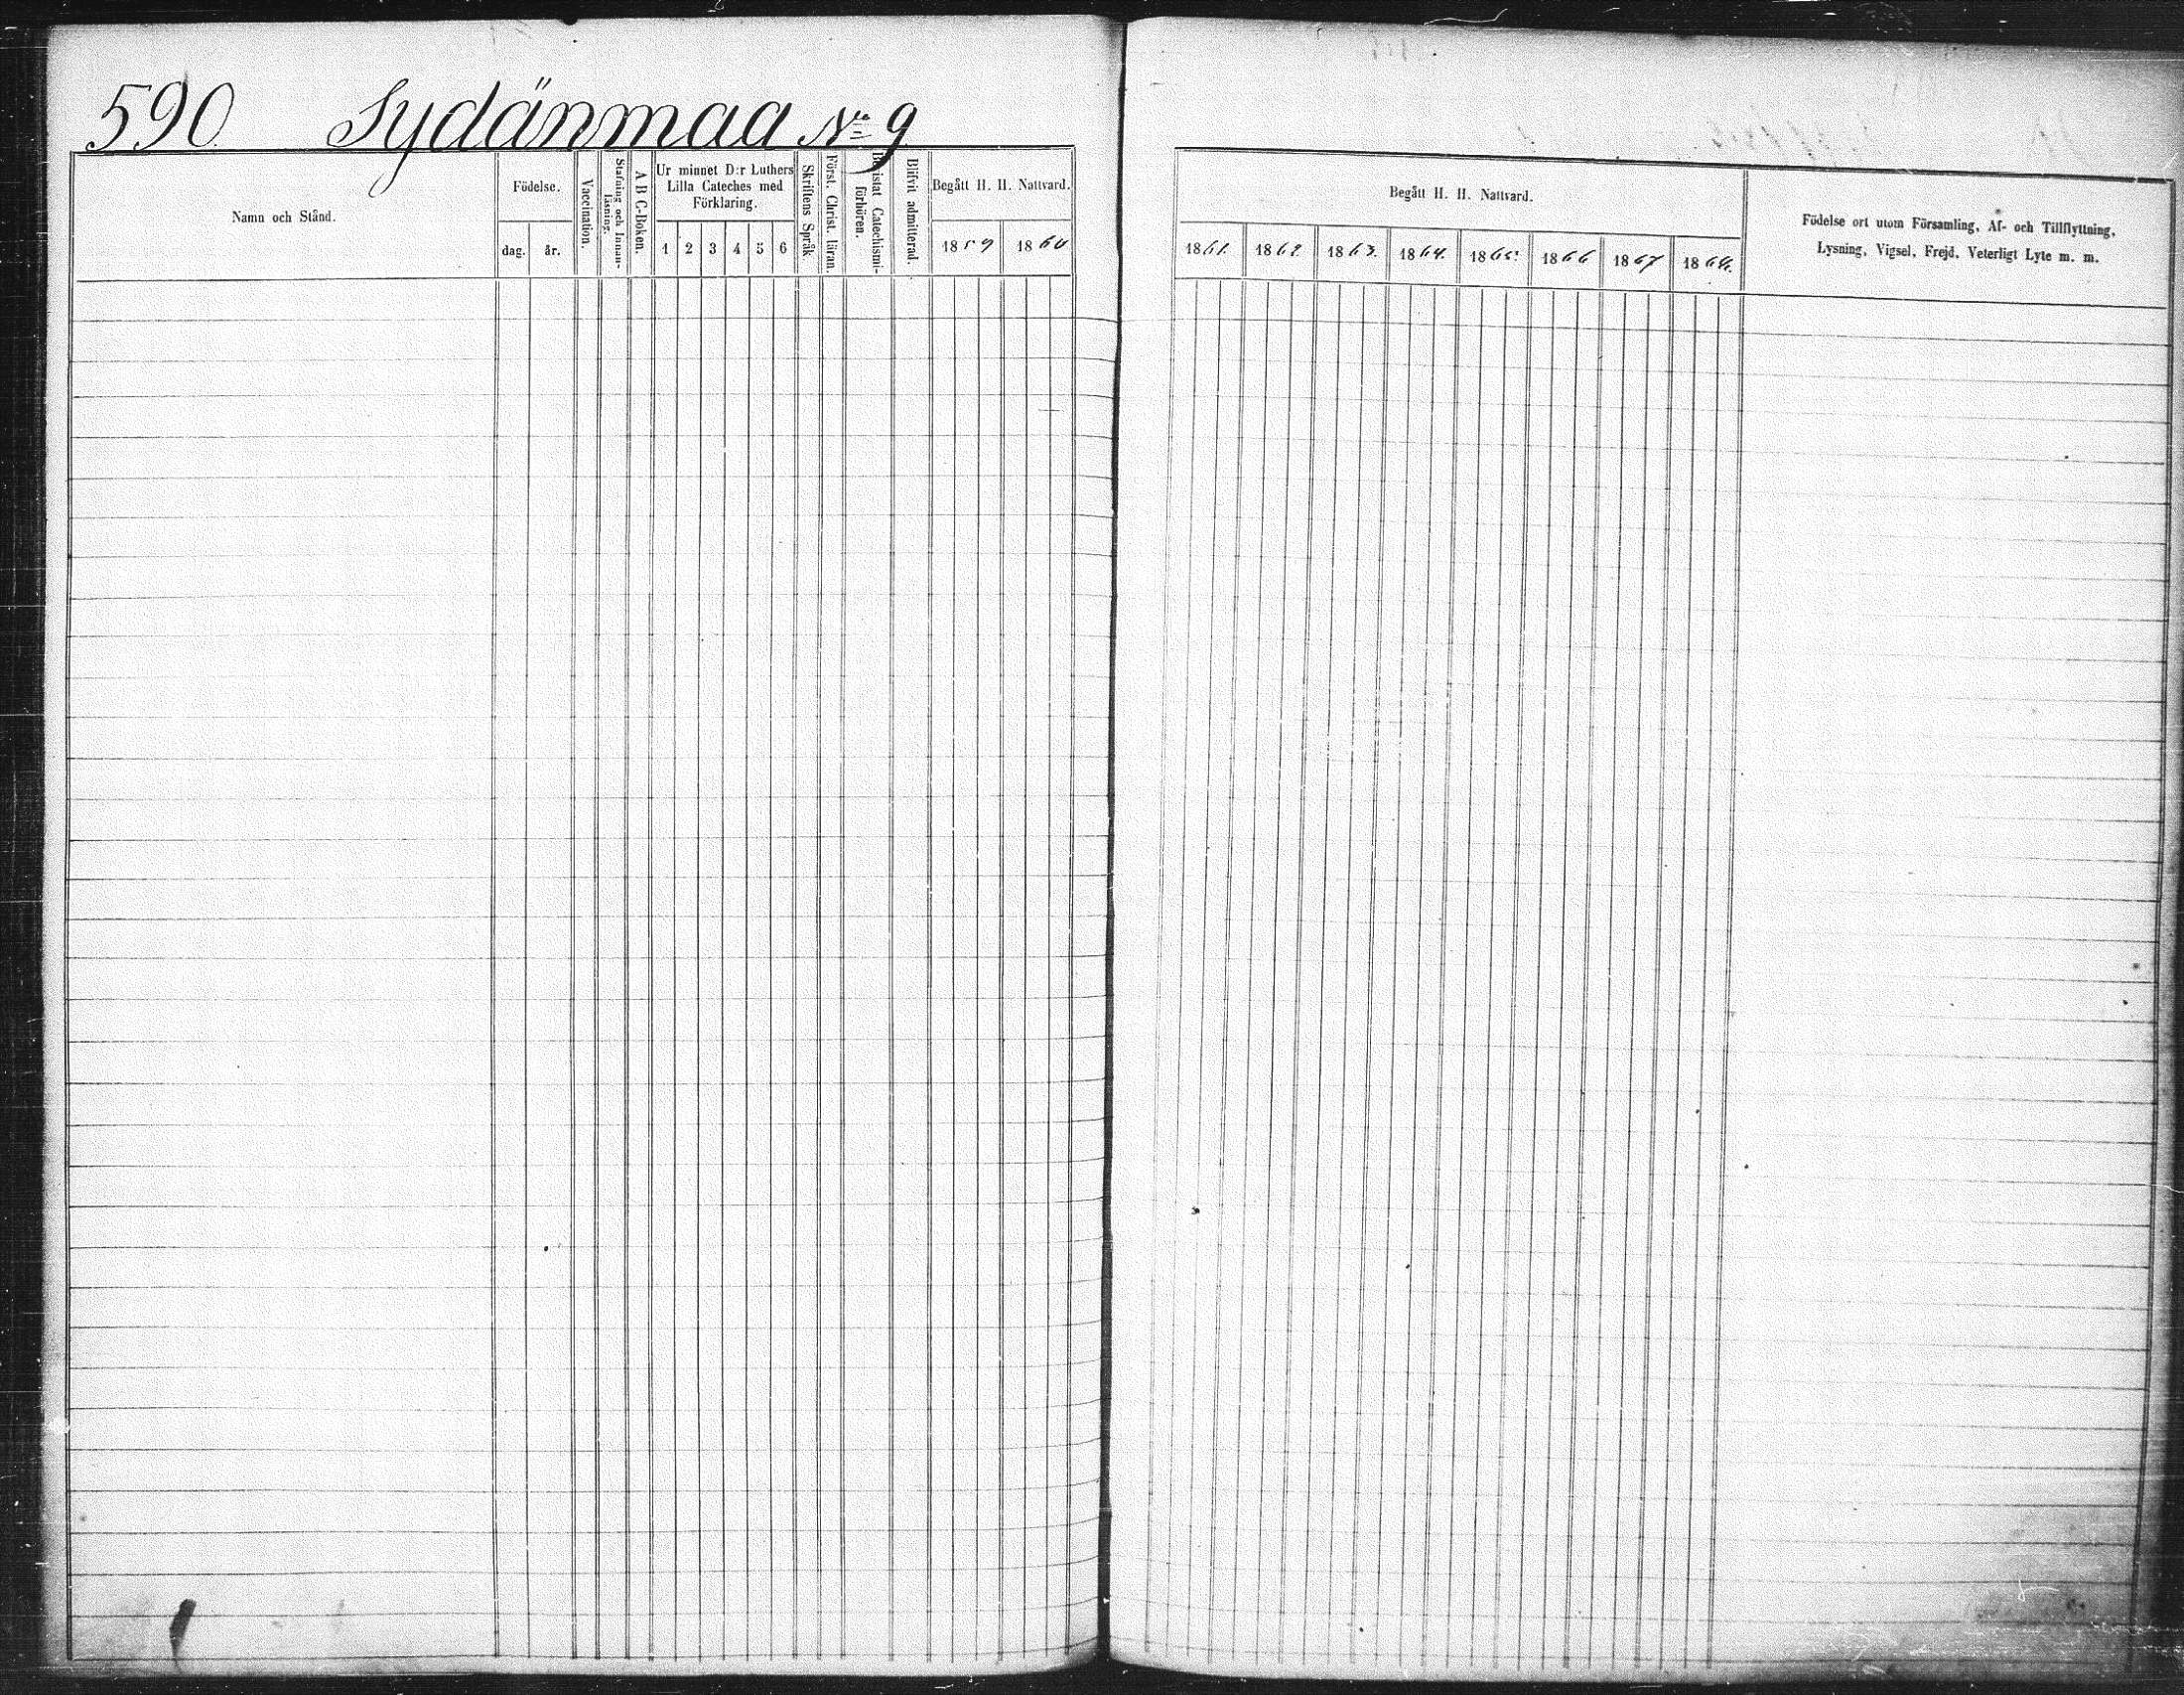 590. Sydänmaa No 9
Namn och Stånd.
Födelse.
dag.
år.
Vaccination.
Stafning och Innan-
läsning.
A B C-Boken.
Ur minnet D:r Luthers
Lilla Cateches med
Förklaring.
1 2 3 4 5 6
Skriftens Språk
Först. Christ. läran.
Bevistat Catechismi-
förhören.
Blifvit admitterad.
Begått H. H. Nattvard.
1859 1860
Begått H. H. Nattvard.
1861. 1862. 1863. 1864. 1865. 1866 1867 1868.
Födelse ort utom Församling, Af- och Tillflyttning,
Lysning, Vigsel, Frejd, Veterligt Lyte m. m.